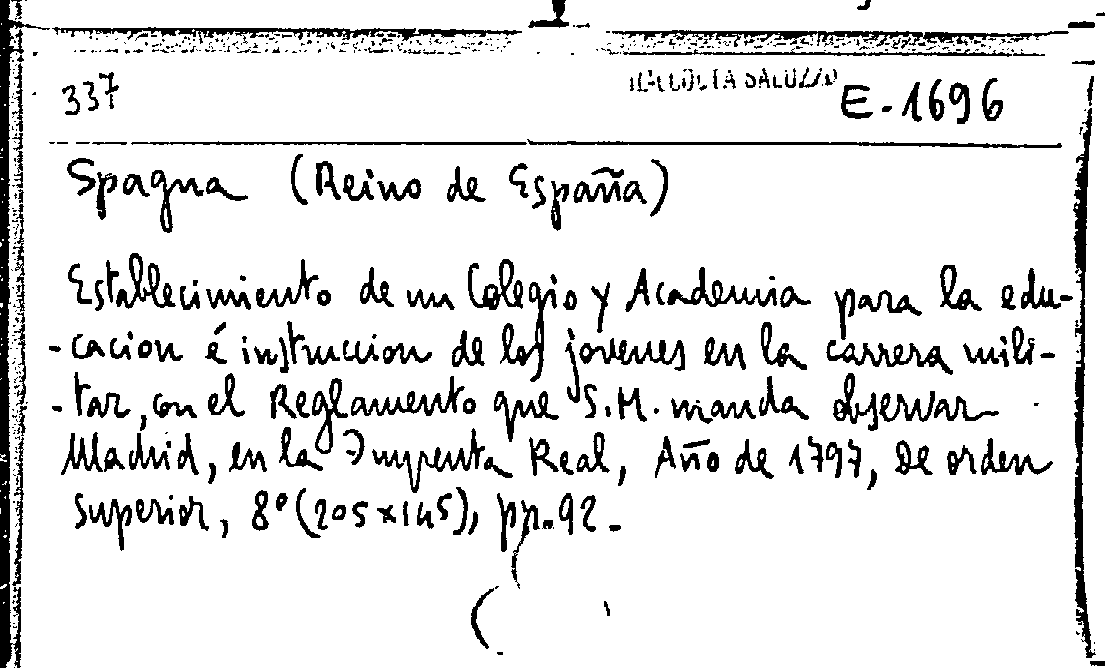 337 RACCOLTA SALUZZO E-1696
Spagna (Reino de España)
Establecimiento de un Colegio y Academia para la edu-
-cacion é instruccion de los jovenes en la carrera mili-
-tar, con el Reglamento que S.M. manda observar
Madrid, en la Imprenta Real, Año de 1797, De orden
superior, 8° (205x145), pp. 92.